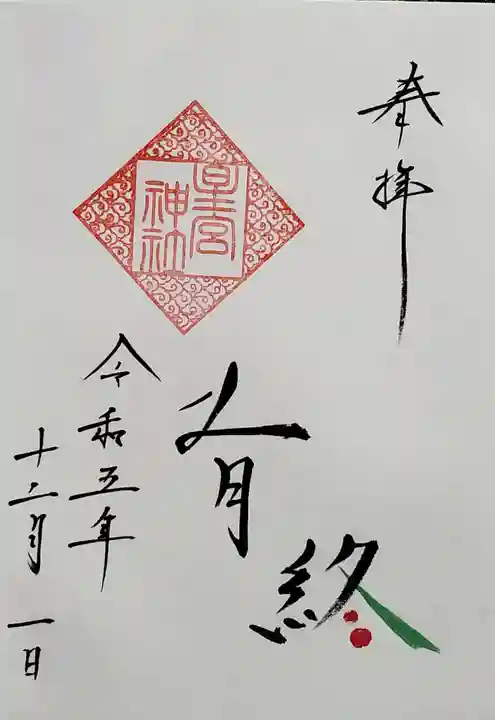 奉拝
皇宮
神社
有
終
令和五年
十二月一日